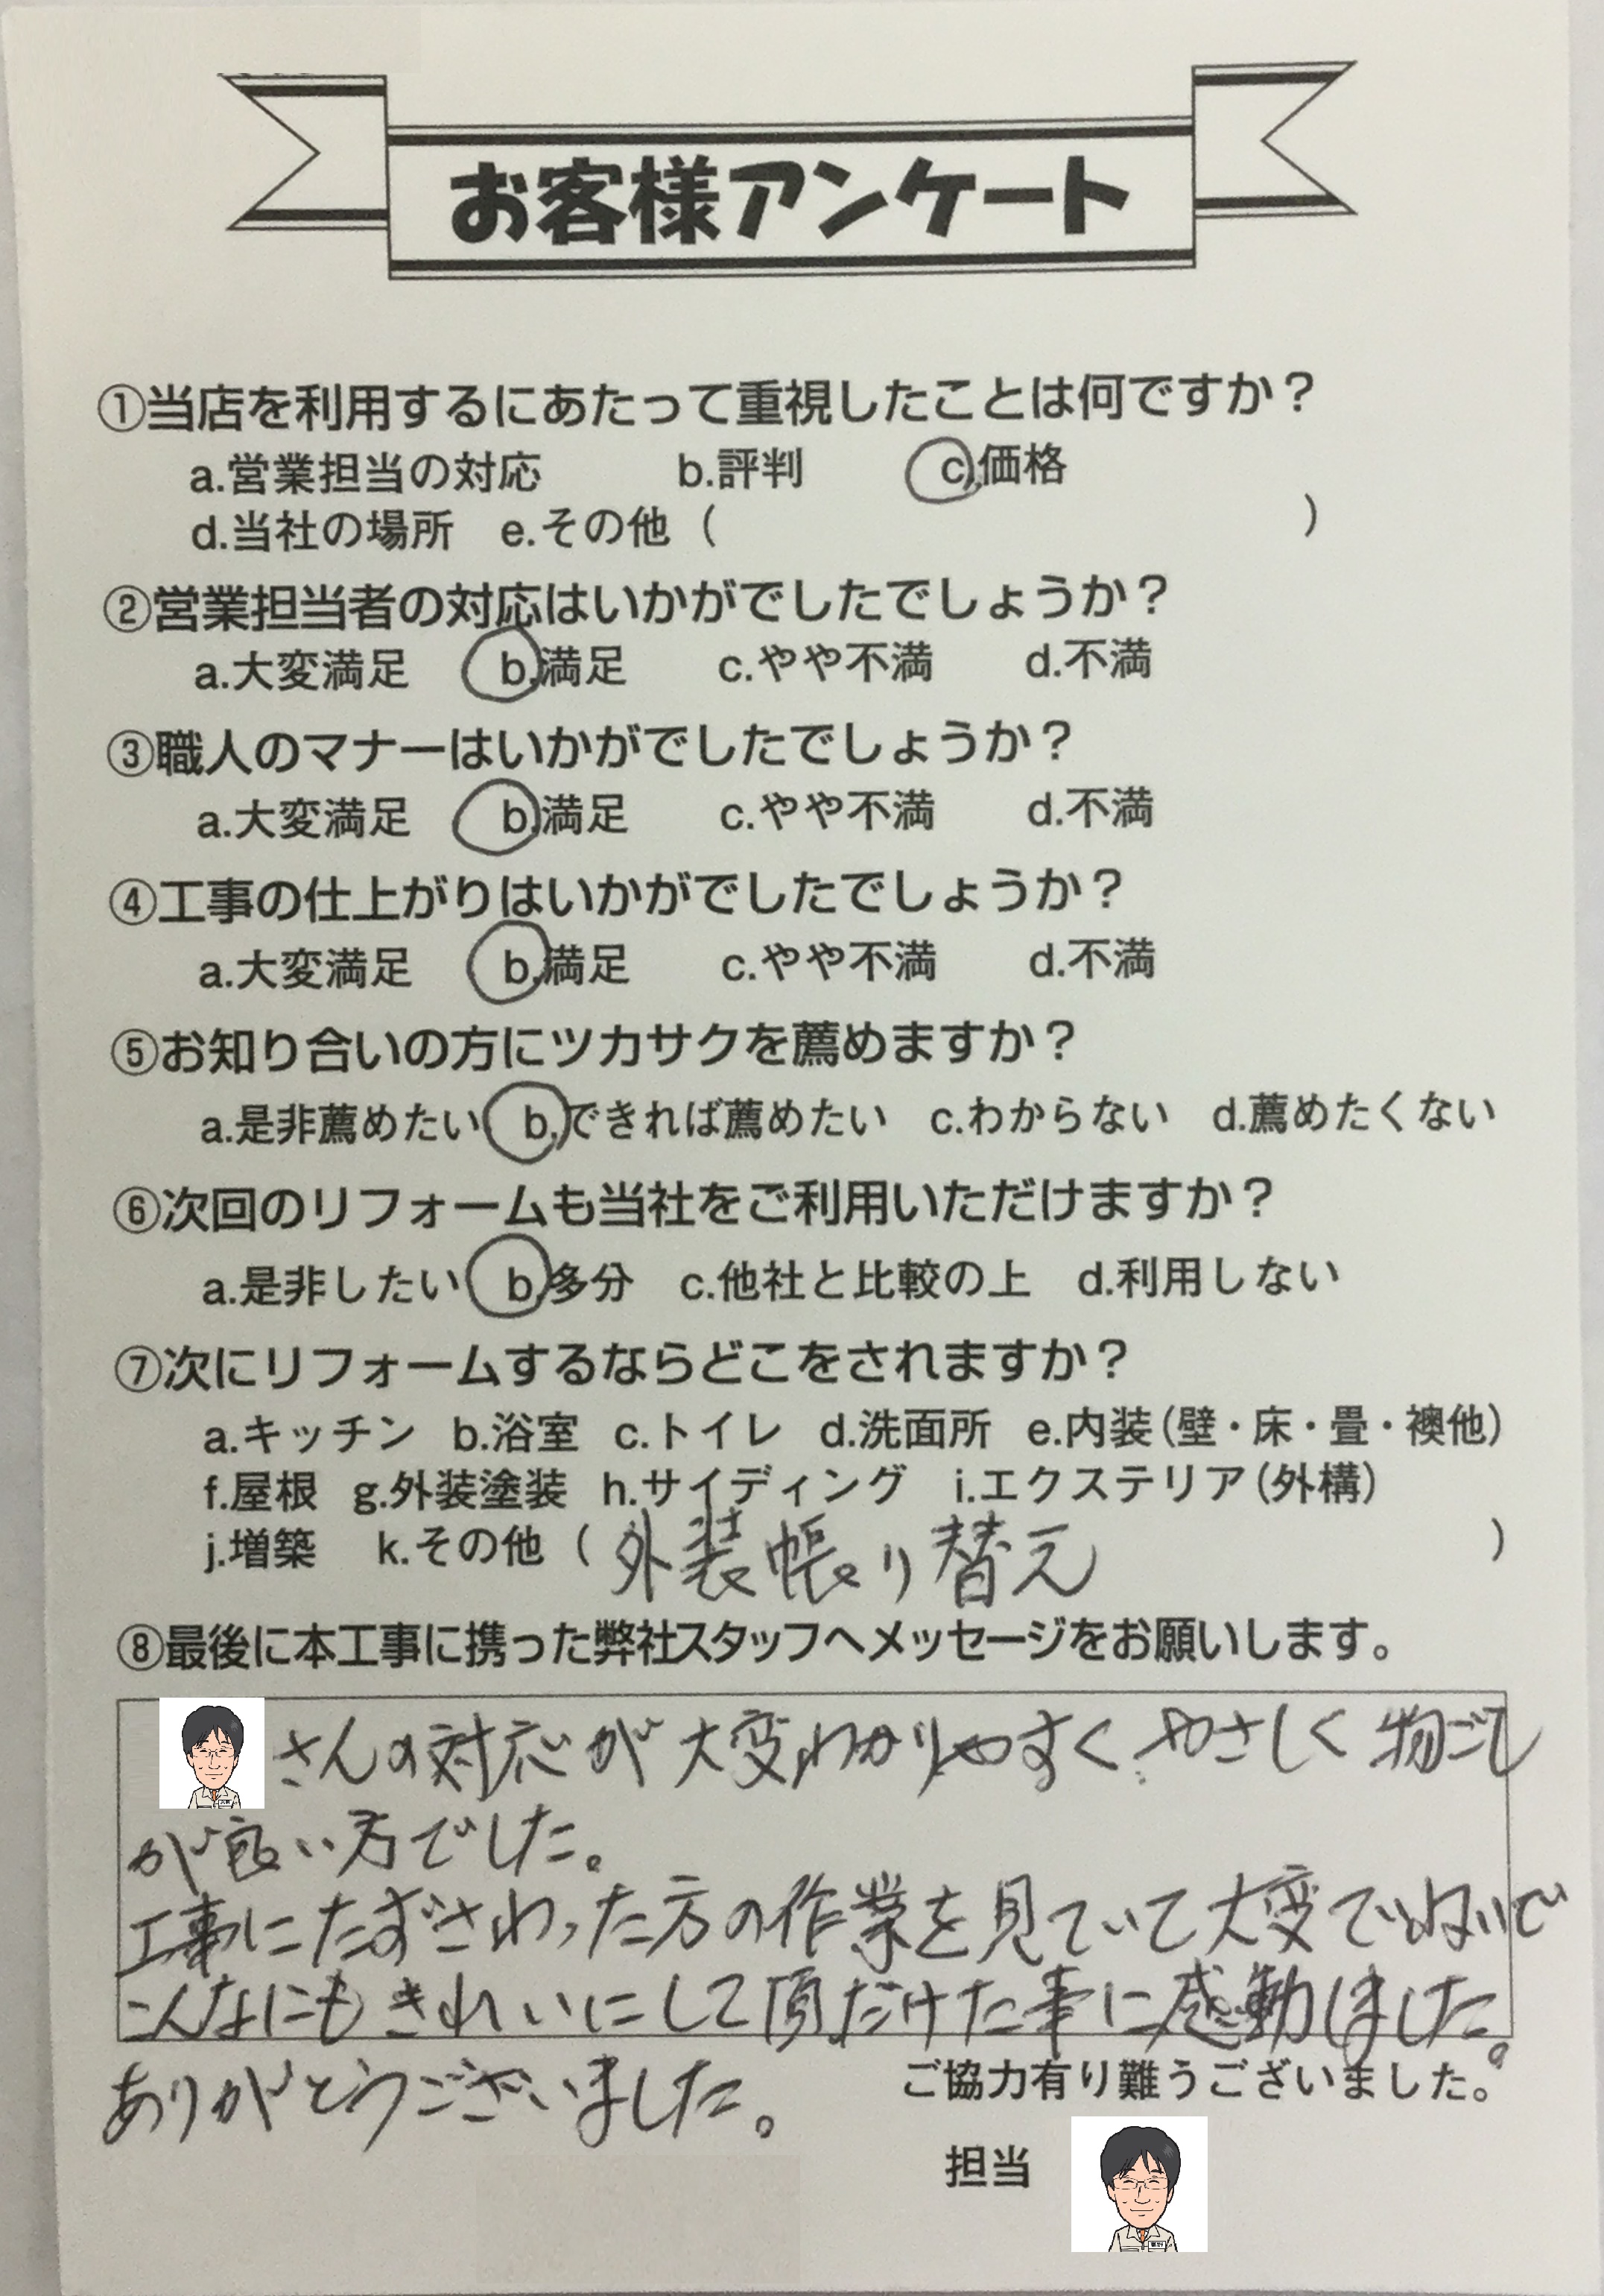 お客様アンケート
①当店を利用するにあたって重視したことは何ですか？
a.営業担当の対応 b.評判 c.価格
d.当社の場所 e.その他（ ）
②営業担当者の対応はいかがでしたでしょうか？
a.大変満足 b.満足 c.やや不満 d.不満
③職人のマナーはいかがでしたでしょうか？
a.大変満足 b.満足 c.やや不満 d.不満
④工事の仕上がりはいかがでしたでしょうか？
a.大変満足 b.満足 c.やや不満 d.不満
⑤お知り合いの方にツカサクを薦めますか？
a.是非薦めたい b.できれば薦めたい c.わからない d.薦めたくない
⑥次回のリフォームも当社をご利用いただけますか？
a.是非したい b.多分 c.他社と比較の上 d.利用しない
⑦次にリフォームするならどこをされますか？
a.キッチン b.浴室 c.トイレ d.洗面所 e.内装（壁・床・畳・襖他）
f.屋根 g.外装塗装 h.サイディング i.エクステリア（外構）
j.増築 k.その他（外装帳り替え）
⑧最後に本工事に携った弊社スタッフへメッセージをお願いします。
さんの対応が大変わかりやすく、やさしく物ごし
が良い方でした。
工事にたずさわった方の作業を見ていて大変ていねいで
こんなにもきれいにして頂だけた事に感動しました。
ありがとうございました。
ご協力有り難うございました。
担当